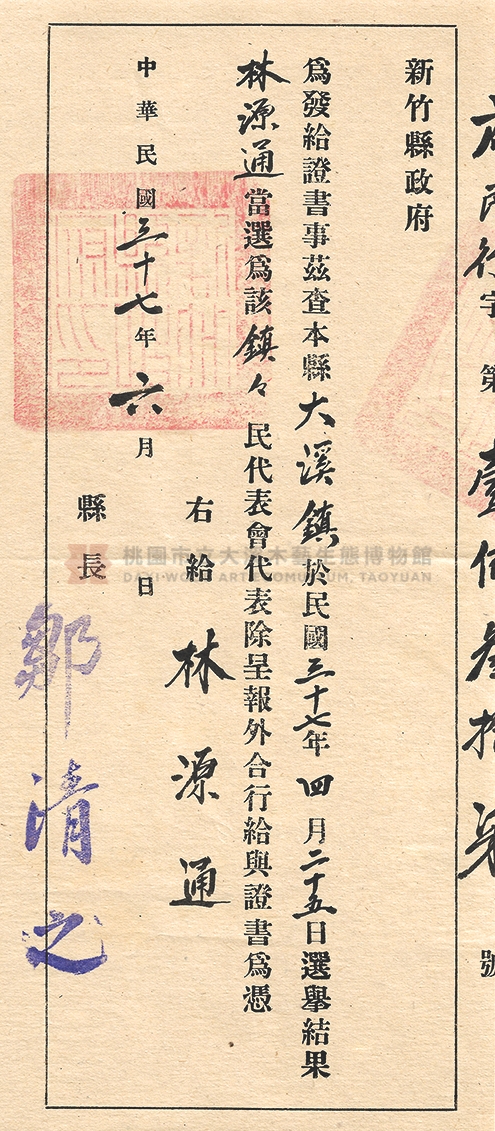 字第壹
號
新竹縣政府
為發給證書事茲查本縣大溪鎮於民國三十七年四月二十五日選舉結果
林源通當選為該鎮々民代表會代表除呈報外合行給與證書為憑
右給林源通
中華民國三十七年六月 日
縣長 鄒清之
桃園市立大溪木藝生態博物館
DAXI WOOD ART ECOMUSEUM, TAOYUAN